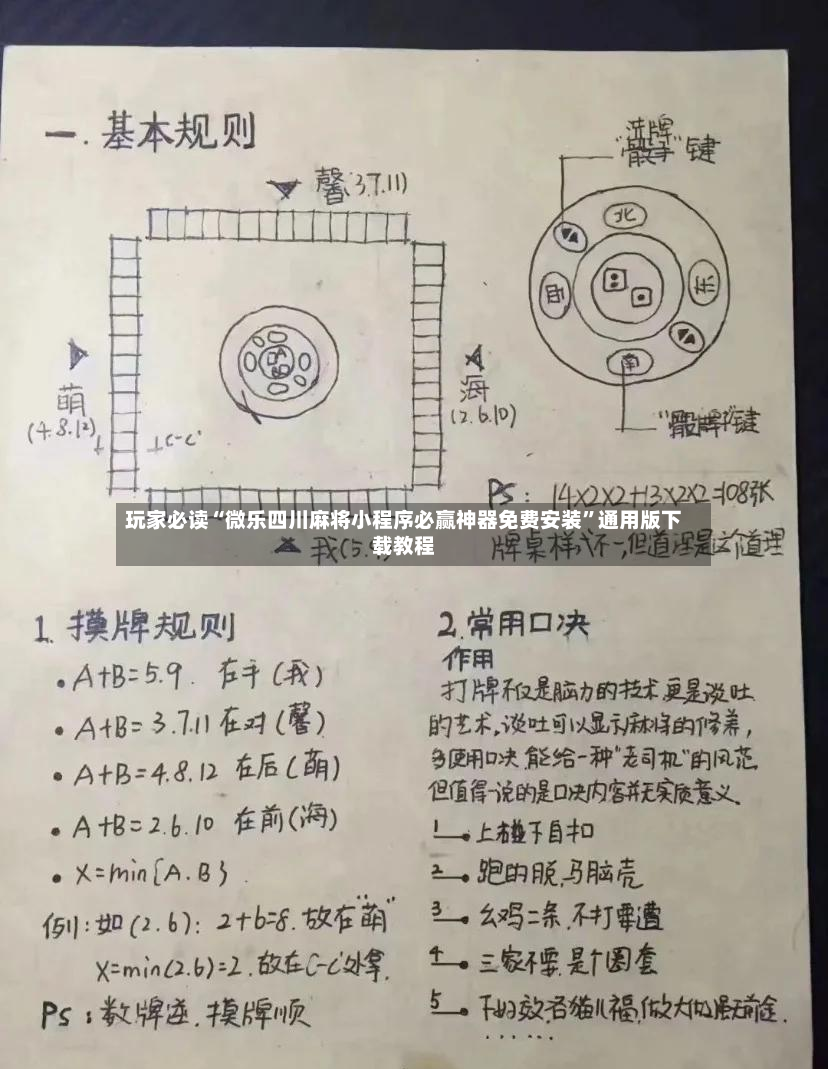 一. 基本规则
洗牌
"骰子"键
馨(3.7.11)
北
西
东
南
萌
(4.8.12)
C-C'
海
(2.6.10)
"骰牌"键
PS: 14×2×2+13×2×2=108张
玩家必读“微乐四川麻将小程序必赢神器免费安装”通用版下
载教程
牌桌样式不一,但道理是这个道理
我(5.9)
1. 摸牌规则
• A+B=5.9. 在手(我)
• A+B=3.7.11 在对(馨)
• A+B=4.8.12 在后(萌)
• A+B=2.6.10 在前(海)
• X=min{A.B}
例:如(2.6): 2+6=8. 放在"萌"
X=min(2.6)=2. 放在C-C'处拿.
PS: 数牌逆. 摸牌顺
2. 常用口决
作用
打牌不仅是脑力的技术,更是谈吐
的艺术,谈吐可以显示麻将的修养,
多使用口决,能给一种"老司机"的风范
但值得一说的是口决内容并无实质意义.
1 上碰下自扣
2 跑的脱,马脑壳
3 幺鸡二条,不打要遭
4 三家不要,是个圈套
5
······